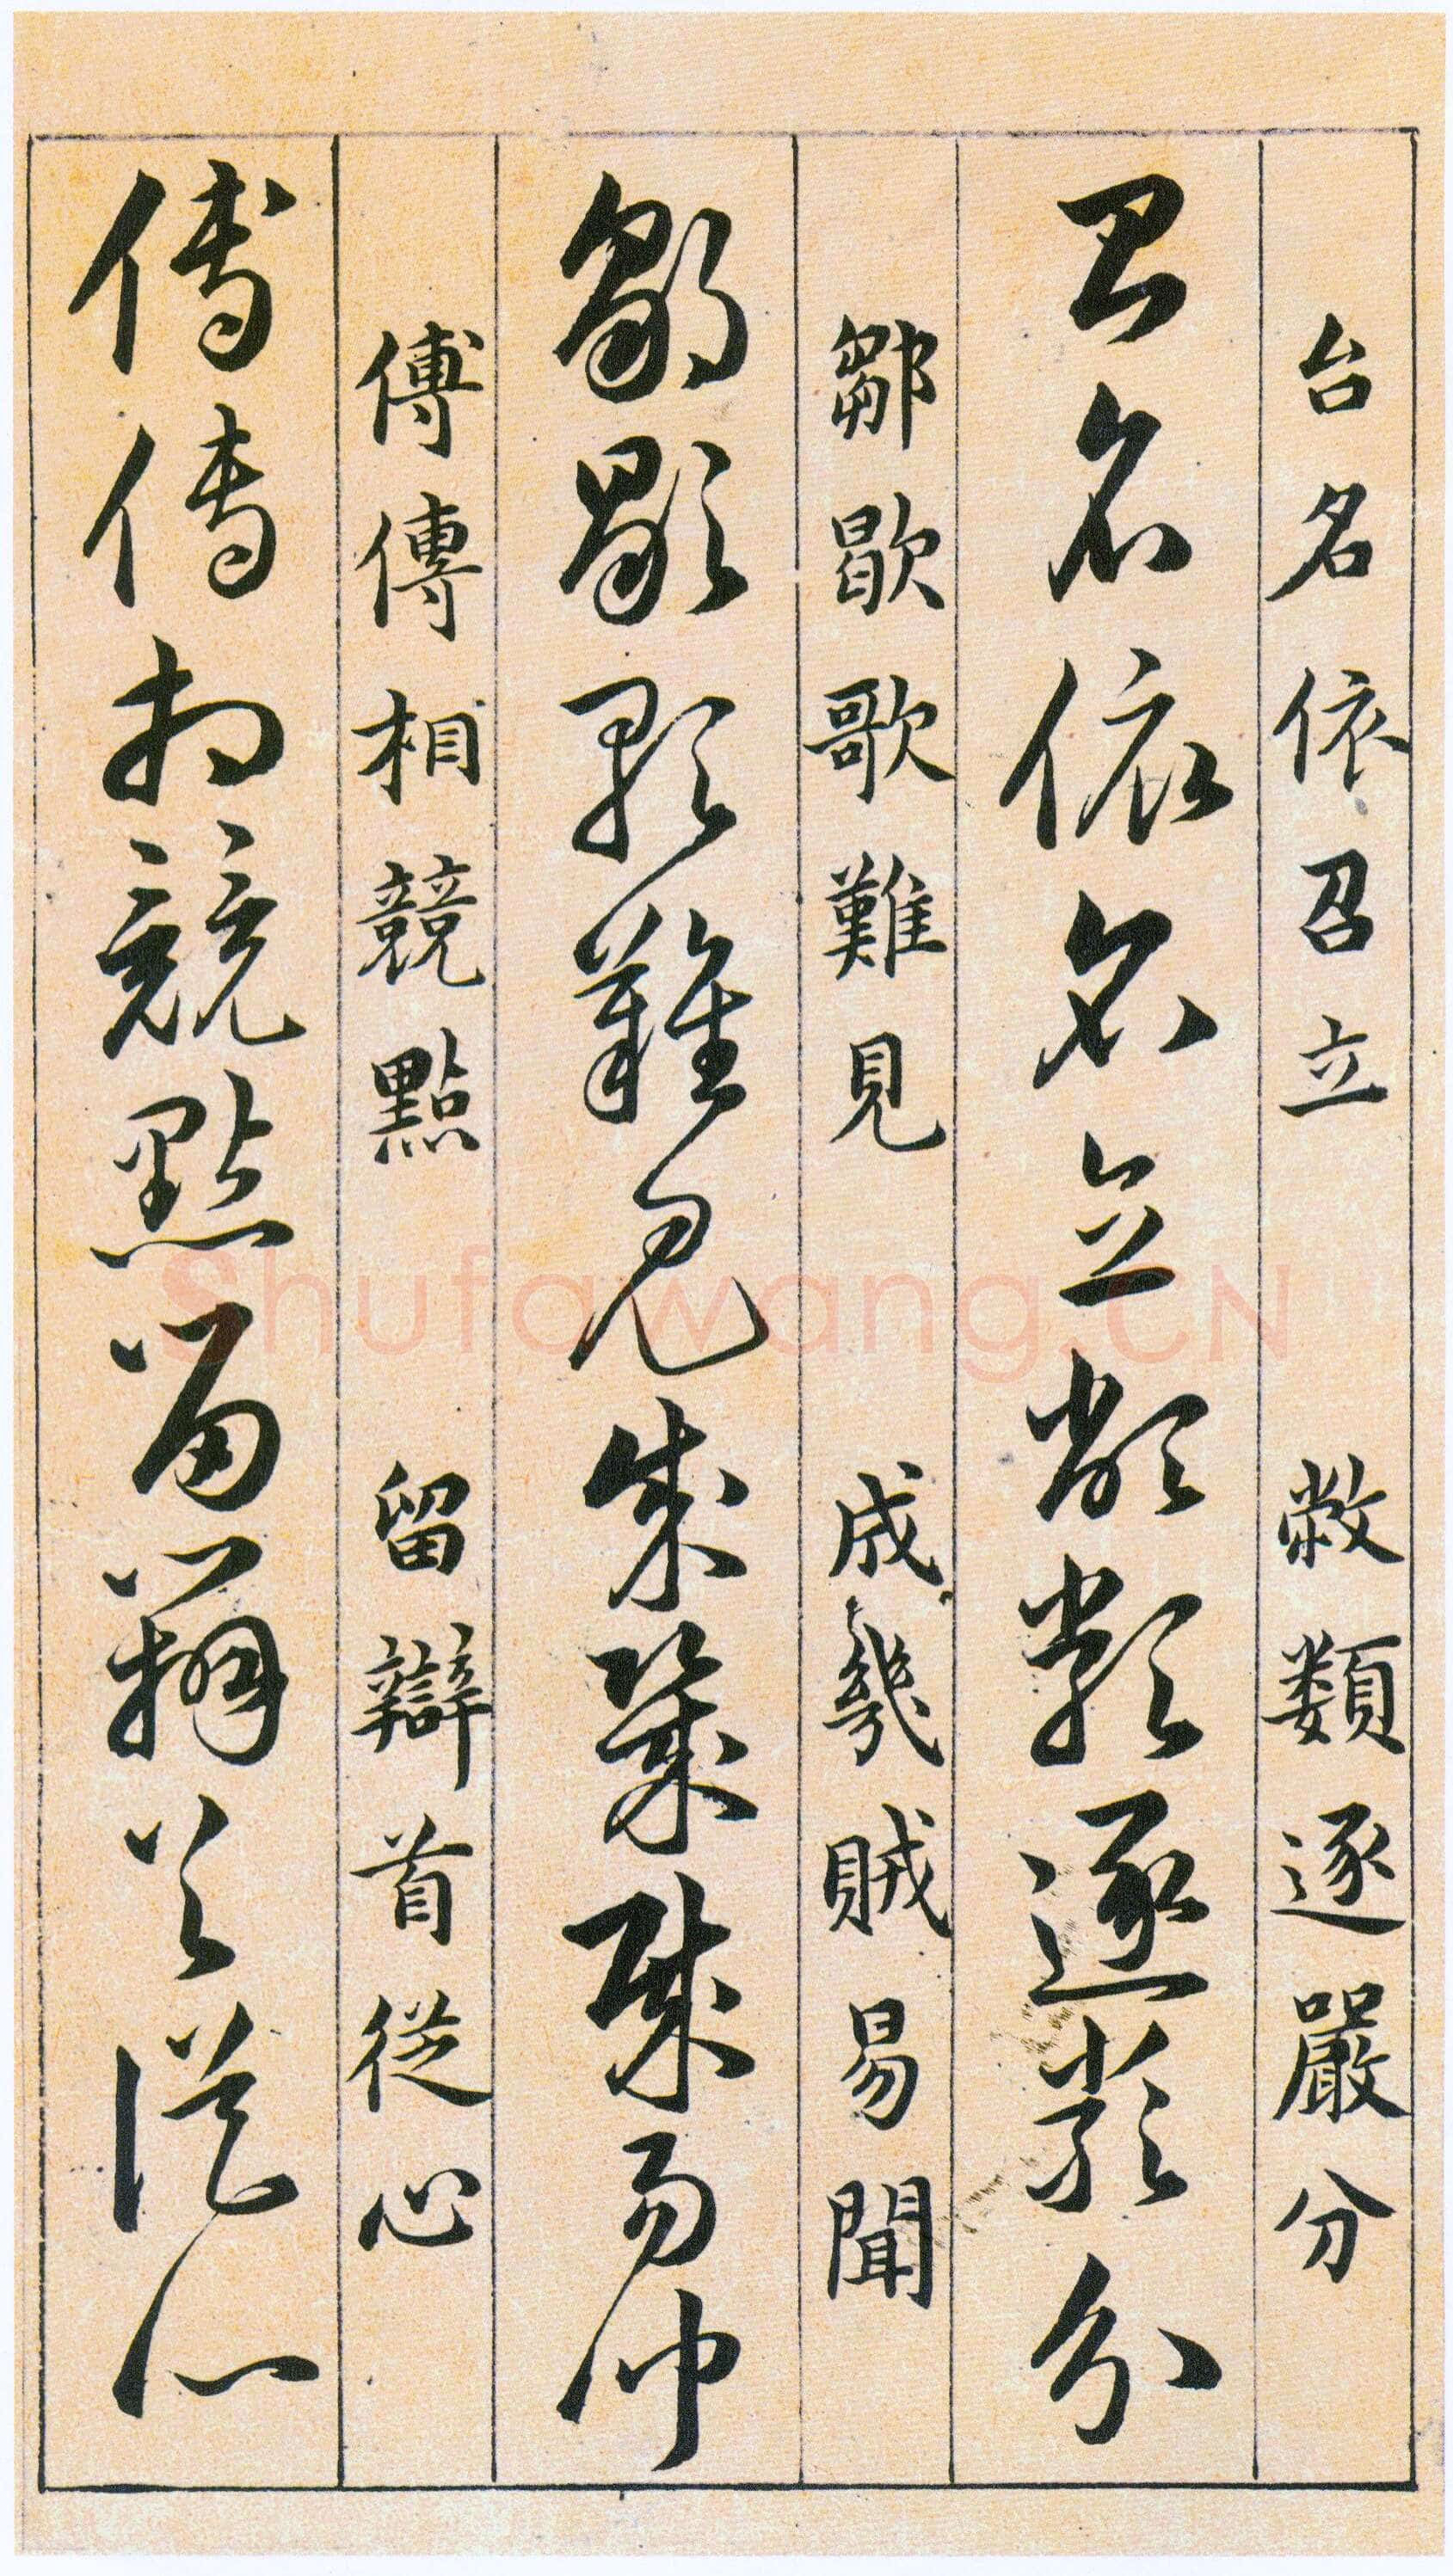 台名依召立　敝類逐嚴分
台名依召立敝類逐嚴分
鄒歇歌難見　成幾賊易聞
鄒歇歌難見成幾賊易聞
傅傳相競點　留辯首從心
傅傳相競點留辯首從心
Shufawang.CN